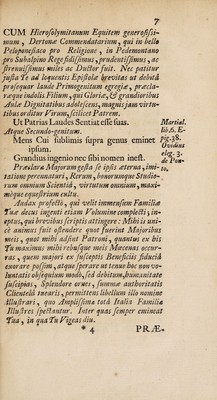 7
CUM Hierosolymitanum Equitem generosissi-
mum, Dertonæ Commendatarium, qui in bello
Peloponesiaco pro Religione, in Pedemontano
pro Subalpino Rege fidissimus, prudentissimus, ac
strenuissimus miles ac Ductor fuit. Nec patitur
justa Te ad loquentis Epistolæ brevitas ut debitâ
prosequar laude Primogenitum egregiæ, præcla-
ræque indolis Filium, qui Gloriæ, & grandioribus
Aulæ Dignitatibus adolescens, magnis jam virtu-
tibus orditur Virum, scilicet Patrem.
Ut Patrias Laudes Sentiat esse suas. Martial.
Atque Secundo-genitum. lib. 6. E-
Mens Cui sublimis supra genus eminet pig. 38.
ipsum. Ovidius
Grandius ingenio nec sibi nomen inest. eleg. 3.
Præclara Majorum gesta se ipsis æterna, imi- de Pon-
tatione perennaturi, Rerum, bonarumque Studio- to,
rum omnium Scientiâ, virtutum omnium, maxi-
mèque equestrium cultu.
Audax profectò, qui velit immensum Familiæ
Tuæ decus ingenti etiam Volumine complecti; in-
eptus, qui brevibus scriptis attingere: Mihi is uni-
cè animus fuit ostendere quot fuerint Majoribus
meis, quot mihi adsint Patroni, quantus ex his
Tu maximus mihi rebusque meis Mæcenas occur-
ras, quem majori ex susceptis Beneficiis fiduciâ
exorare possim, atque sperare ut tenue hoc non vo-
luntatis obsequium modò, sed debitum, humanitate
suscipias, Splendore ornes, summæ authoritatis
Clientelâ tuearis, permittens libellum illo nomine
Illustrari, quo Amplissima tota Italis Familia
Illustres spectantur. Inter quas semper emineat
Tua, in qua Tu Vigeas diu.
* 4 PRÆ-